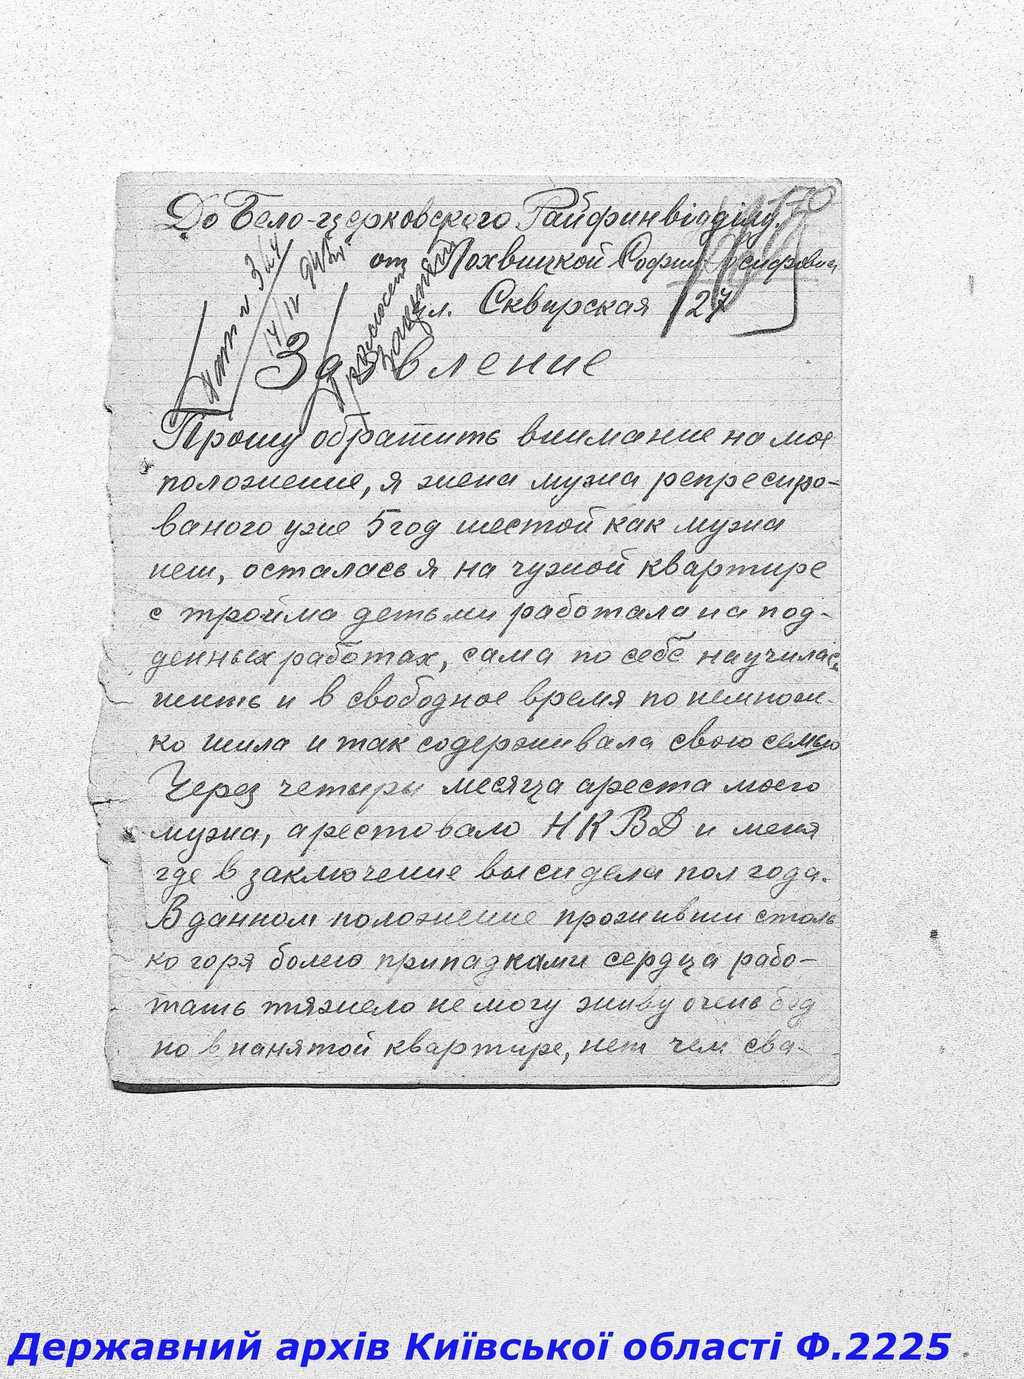 До Бело-церковского Райфинвідділу.
от Лохвицкой Софии Иосифовни
ул. Сквирская 27
Заявление
Прошу обратить внимание на мое
положение, я жена мужа репресиро-
ваного уже 5 год шестой как мужа
нет, осталась я на чужой квартире
с тройма детьми работала на под-
денных работах, сама по себе научилась
шить и в свободное время по немнож-
ко шила и так содерживала свою семью
Через четыры месяца ареста моего
мужа, арестовало НКВД и меня
где в заключение высидела пол года.
В данном положение проживши столь
ко горя болею припадками сердца рабо-
тать тяжело не могу живу очень бед
но в нанятой квартире, нет чем сва-
Державний архів Київської області Ф.2225